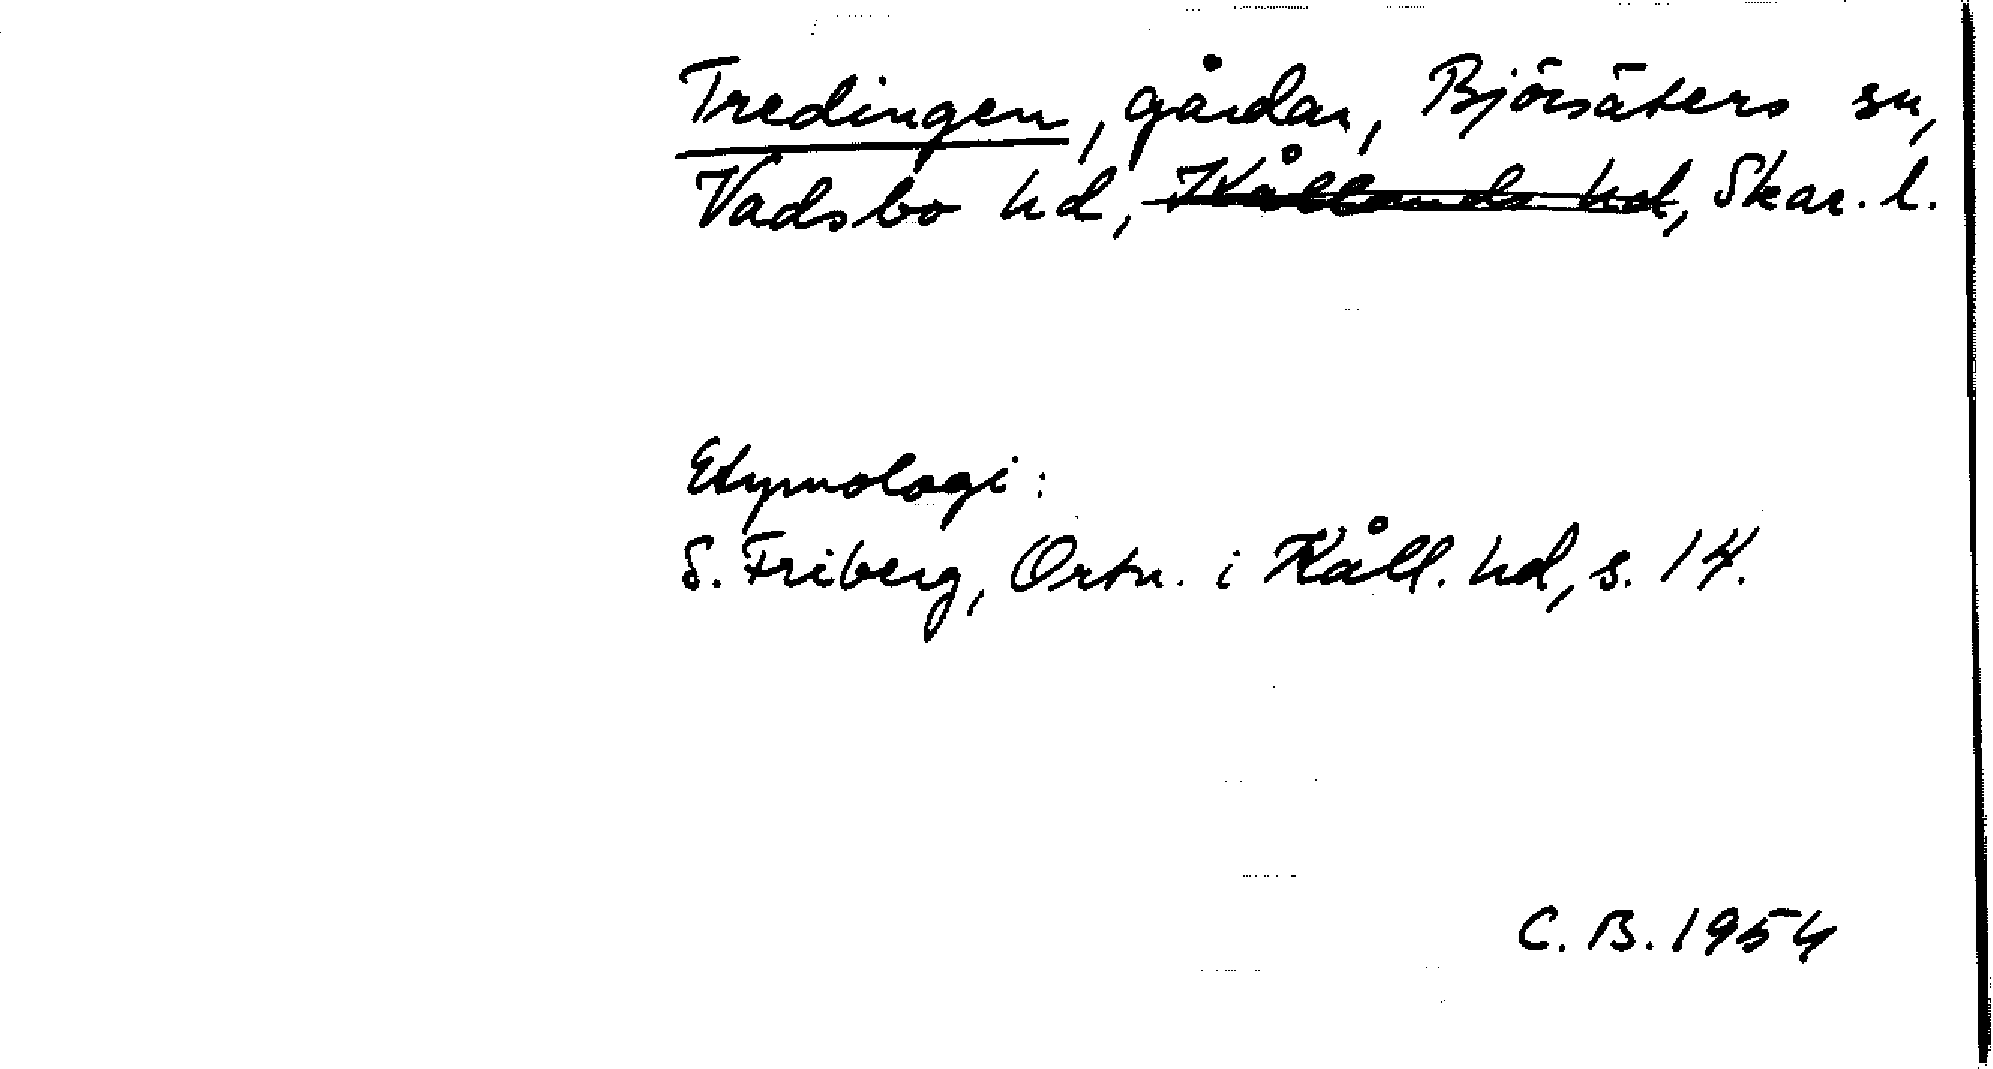 Tredingen, gårdar, Björsäters sn,
Vadsbo hd, Kållands hd, Skar. l.
Etymologi:
S. Friberg, Ortn. i Kåll. hd, s. 14.
C. B. 1954